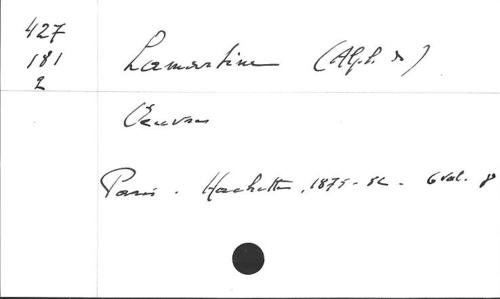 427
181
2
Lamartine (Alph. de)
Œuvres
Paris. Hachette, 1875-82. 6 vol. 8º